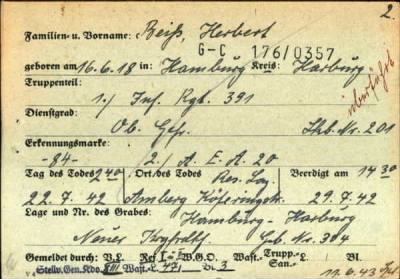 2.
Familien- u. Vorname: Beiß, Herbert
G-C 176/0357
geboren am 16.6.18 in: Hamburg Kreis: Harburg
überführt
Truppenteil:
1./ Inf. Rgt. 391
Dienstgrad:
Ob. Gefr. Stb. Nr. 201
Erkennungsmarke:
-84- 2./ A. E. A. 20
Tag des Todes 2:40 Ort/des Todes Res. Laz. Beerdigt am 14:30
22.7.42 Amberg 29.7.42
Lage und Nr. des Grabes: Hamburg-Harburg
Neuer Grb. Nr. 304
Gemeldet durch: V.L. Ref W.G.O. Wast. Trupp.- San.- L. Bl.
Stellv. Gen. Kdo. XIII Wast.-L. 471 Bl. 3 6.43